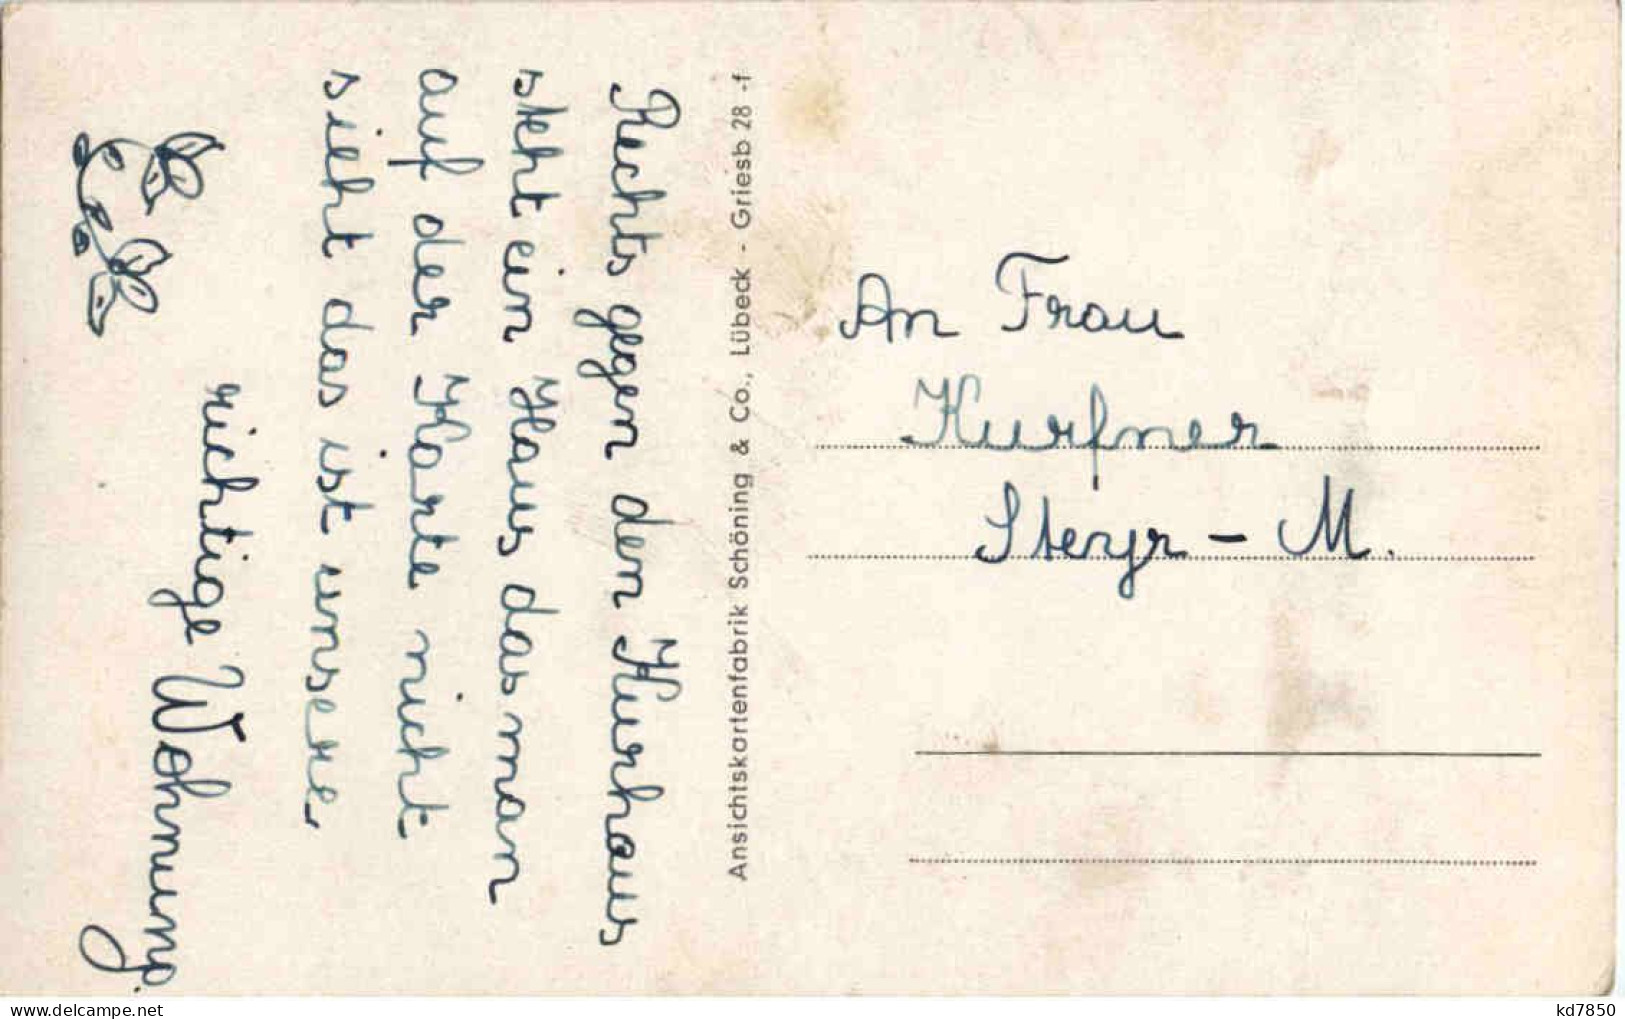 Rechts gegen den Kurhaus
steht ein Haus das man
auf der Karte nicht
sieht das ist unsere
richtige Wohnung.
Ansichtskartenfabrik Schöning & Co., Lübeck - Griesb 28 -f
An Frau
Kurfner
Steyr - M.
kd7850